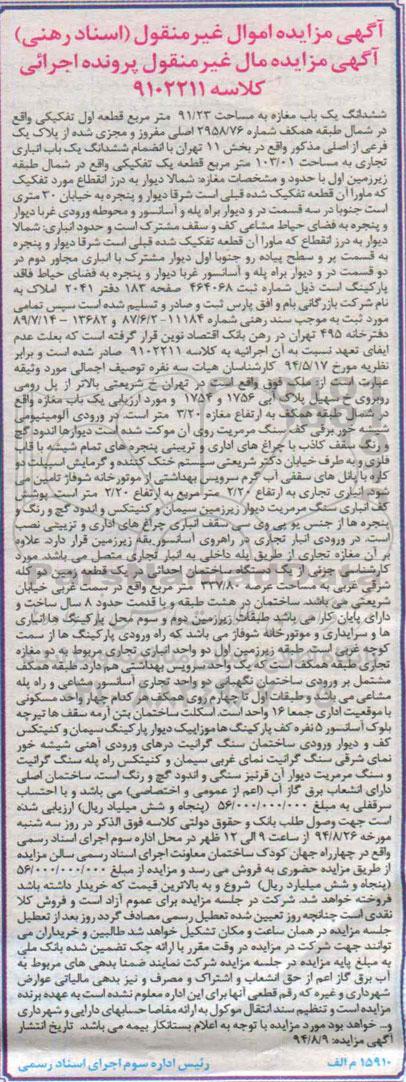 آگهی مزایده اموال غیرمنقول (اسناد رهنی)
آگهی مزایده مال غیرمنقول پرونده اجرائی
کلاسه ۹۱۰۲۲۱۱
ششدانگ یک باب مغازه به مساحت ۹۱/۲۳ متر مربع قطعه اول تفکیکی واقع
در شمال طبقه همکف شماره ۲۹۵۸/۷۶ اصلی مفروز و مجزی شده از پلاک یک
فرعی از اصلی مذکور واقع در بخش ۱۱ تهران با انضمام ششدانگ یک باب انباری
تجاری به مساحت ۱۰۳/۰۱ متر مربع قطعه یک تفکیکی واقع در شمال طبقه
زیرزمین اول با حدود و مشخصات مغازه: شمالا دیوار به درز انقطاع مورد تفکیک
که ماورا آن قطعه تفکیک شده قبلی است شرقا دیوار و پنجره به خیابان ۳۰ متری
است جنوبا در سه قسمت در و دیوار براه پله و آسانسور و محوطه ورودی غربا دیوار
و پنجره به فضای حیاط مشاعی کف و سقف مشترک است و حدود انباری: شمالا
دیوار به درز انقطاع که ماورا آن قطعه تفکیک شده قبلی است شرقا دیوار و پنجره
به قسمت بر و سطح پیاده رو جنوبا اول دیوار مشترک با انباری مجاور دوم در
دو قسمت در و دیوار براه پله و آسانسور غربا دیوار و پنجره به فضای حیاط فاقد
پارکینگ است ذیل شماره ثبت ۴۶۴۰۶۸ صفحه ۱۸۳ دفتر ۲۰۴۱ املاک به
نام شرکت بازرگانی بام و افق پارس ثبت و صادر و تسلیم شده است سپس تمامی
مورد ثبت به موجب سند رهنی شماره ۱۱۱۸۴- ۸۷/۶/۲ و ۱۳۶۸۲ – ۸۹/۷/۱۴
دفترخانه ۴۹۵ تهران در رهن بانک اقتصاد نوین قرار گرفته است که بعلت عدم
ایفای تعهد نسبت به آن اجرائیه به کلاسه ۹۱۰۲۲۱۱ صادر شده است و برابر
نظریه مورخ ۹۴/۵/۱۷ کارشناسان هیات سه نفره توصیف اجمالی مورد وثیقه
عبارت است از ملک فوق واقع است در تهران خ شریعتی بالاتر از پل رومی
روبروی خ سهیل پلاک آبی ۱۷۵۶ و ۱۷۵۴ و مورد ارزیابی یک باب مغازه واقع
در شمال طبقه همکف به ارتفاع مغازه ۳/۲۰ متر است. در ورودی آلومینیومی
شیشه خور برقی کف سنگ مرمریت روی آن موکت شده است دیوارها اندود گچ
و رنگ سقف کاذب با چراغ های اداری و تزیینی پنجره های تمام شیشه با قاب
فلزی و به طرف خیابان دکتر شریعتی سیستم خنک کننده و گرمایش اسپیلت دو
کاره با پانل های سقفی آب گرم سرویس بهداشتی از موتورخانه شوفاژ تامین می
شود انباری تجاری به ارتفاع ۲/۲۰ متر مربع به ارتفاع ۲/۲۰ متر است. پوشش
کف انباری سنگ مرمریت دیوار زیرزمین سیمان و کنیتکس و اندود گچ و رنگ و
پنجره ها از جنس یو پی وی سی سقف انباری چراغ های اداری و تزیینی نصب
است. در ورودی انبار تجاری در راهروی آسانسور یقه زیرزمین قرار دارد. علاوه
بر آن مغازه تجاری از طریق پله داخلی به انبار تجاری متصل می باشد. مورد
کارشناسی جزئی از یک دستگاه ساختمان احداثی در یک قطعه زمین دو کله
شرقی غربی به مساحت عرصه ۷۳۷/۸۰ متر مربع واقع در سمت غربی خیابان
شریعتی می باشد. ساختمان در هشت طبقه و با قدمت حدود ۸ سال ساخت و
دارای پایان کار می باشد طبقات زیرزمین دوم و سوم محل پارکینگ ها انباری
ها و سرایداری و موتورخانه شوفاژ می باشد که راه ورودی پارکینگ ها از سمت
کوچه غربی است. طبقه زیرزمین اول دو واحد انباری تجاری مربوط به دو مغازه
تجاری طبقه همکف است که یک واحد سرویس بهداشتی هم دارد. طبقه همکف
مشتمل بر ورودی ساختمان نگهبانی دو واحد تجاری آسانسور مشاعی و راه پله
مشاعی می باشد و طبقات اول تا چهارم روی همکف هر کدام چهار واحد مسکونی
با موقعیت اداری جمعا ۱۶ واحد است. اسکلت ساختمان بتن آرمه سقف ها تیرچه
بلوک آسانسور ۵ نفره کف پارکینگ ها موزاییک دیوار پارکینگ سیمان و کنیتکس
کف و دیوار ورودی ساختمان سنگ گرانیت درهای ورودی آهنی شیشه خور
نمای شرقی سنگ گرانیت نمای غربی سیمان و کنیتکس راه پله سنگ گرانیت
و سنگ مرمریت دیوار آن قرنیز سنگی و اندود گچ و رنگ است. ساختمان اصلی
دارای انشعاب برق گاز آب (اعم از عمومی و اختصاصی) می باشد و با احتساب
سرقفلی به مبلغ ۵۶/۰۰۰/۰۰۰/۰۰۰ (پنجاه و شش میلیارد ریال) ارزیابی شده
است جهت وصول طلب بانک و حقوق دولتی کلاسه فوق الذکر در روز سه شنبه
مورخه ۹۴/۸/۲۶ از ساعت ۹ الی ۱۲ ظهر در محل اداره سوم اجرای اسناد رسمی
واقع در چهارراه جهان کودک ساختمان معاونت اجرای اسناد رسمی سالن مزایده
از طریق مزایده حضوری به فروش می رسد و مزایده از مبلغ ۵۶/۰۰۰/۰۰۰/۰۰۰
(پنجاه و شش میلیارد ریال) شروع و به بالاترین قیمت که خریدار داشته باشد
فروخته خواهد شد. شرکت در جلسه مزایده برای عموم آزاد است و فروش کلا
نقدی است چنانچه روز تعیین شده تعطیل رسمی مصادف گردد روز بعد از تعطیل
جلسه مزایده در همان ساعت و مکان تشکیل خواهد شد طالبین و خریداران می
توانند جهت شرکت در مزایده در وقت مقرر با ارائه چک تضمین شده بانک ملی
به مبلغ پایه مزایده در جلسه مزایده شرکت نمایند ضمنا بدهی های مربوط به
آب برق گاز اعم از حق انشعاب و اشتراک و مصرف و نیز بدهی مالیاتی عوارض
شهرداری و غیره که رقم قطعی آنها برای این اداره معلوم نشده است به عهده برنده
مزایده است و تنظیم سند انتقال موکول به ارائه مفاصا حسابهای دارایی و شهرداری
و... خواهد بود مورد مزایده با توجه به اعلام بستانکار بیمه می باشد. تاریخ انتشار
آگهی مزایده: ۹۴/۸/۹
۱۵۹۱۰ م الف رئیس اداره سوم اجرای اسناد رسمی